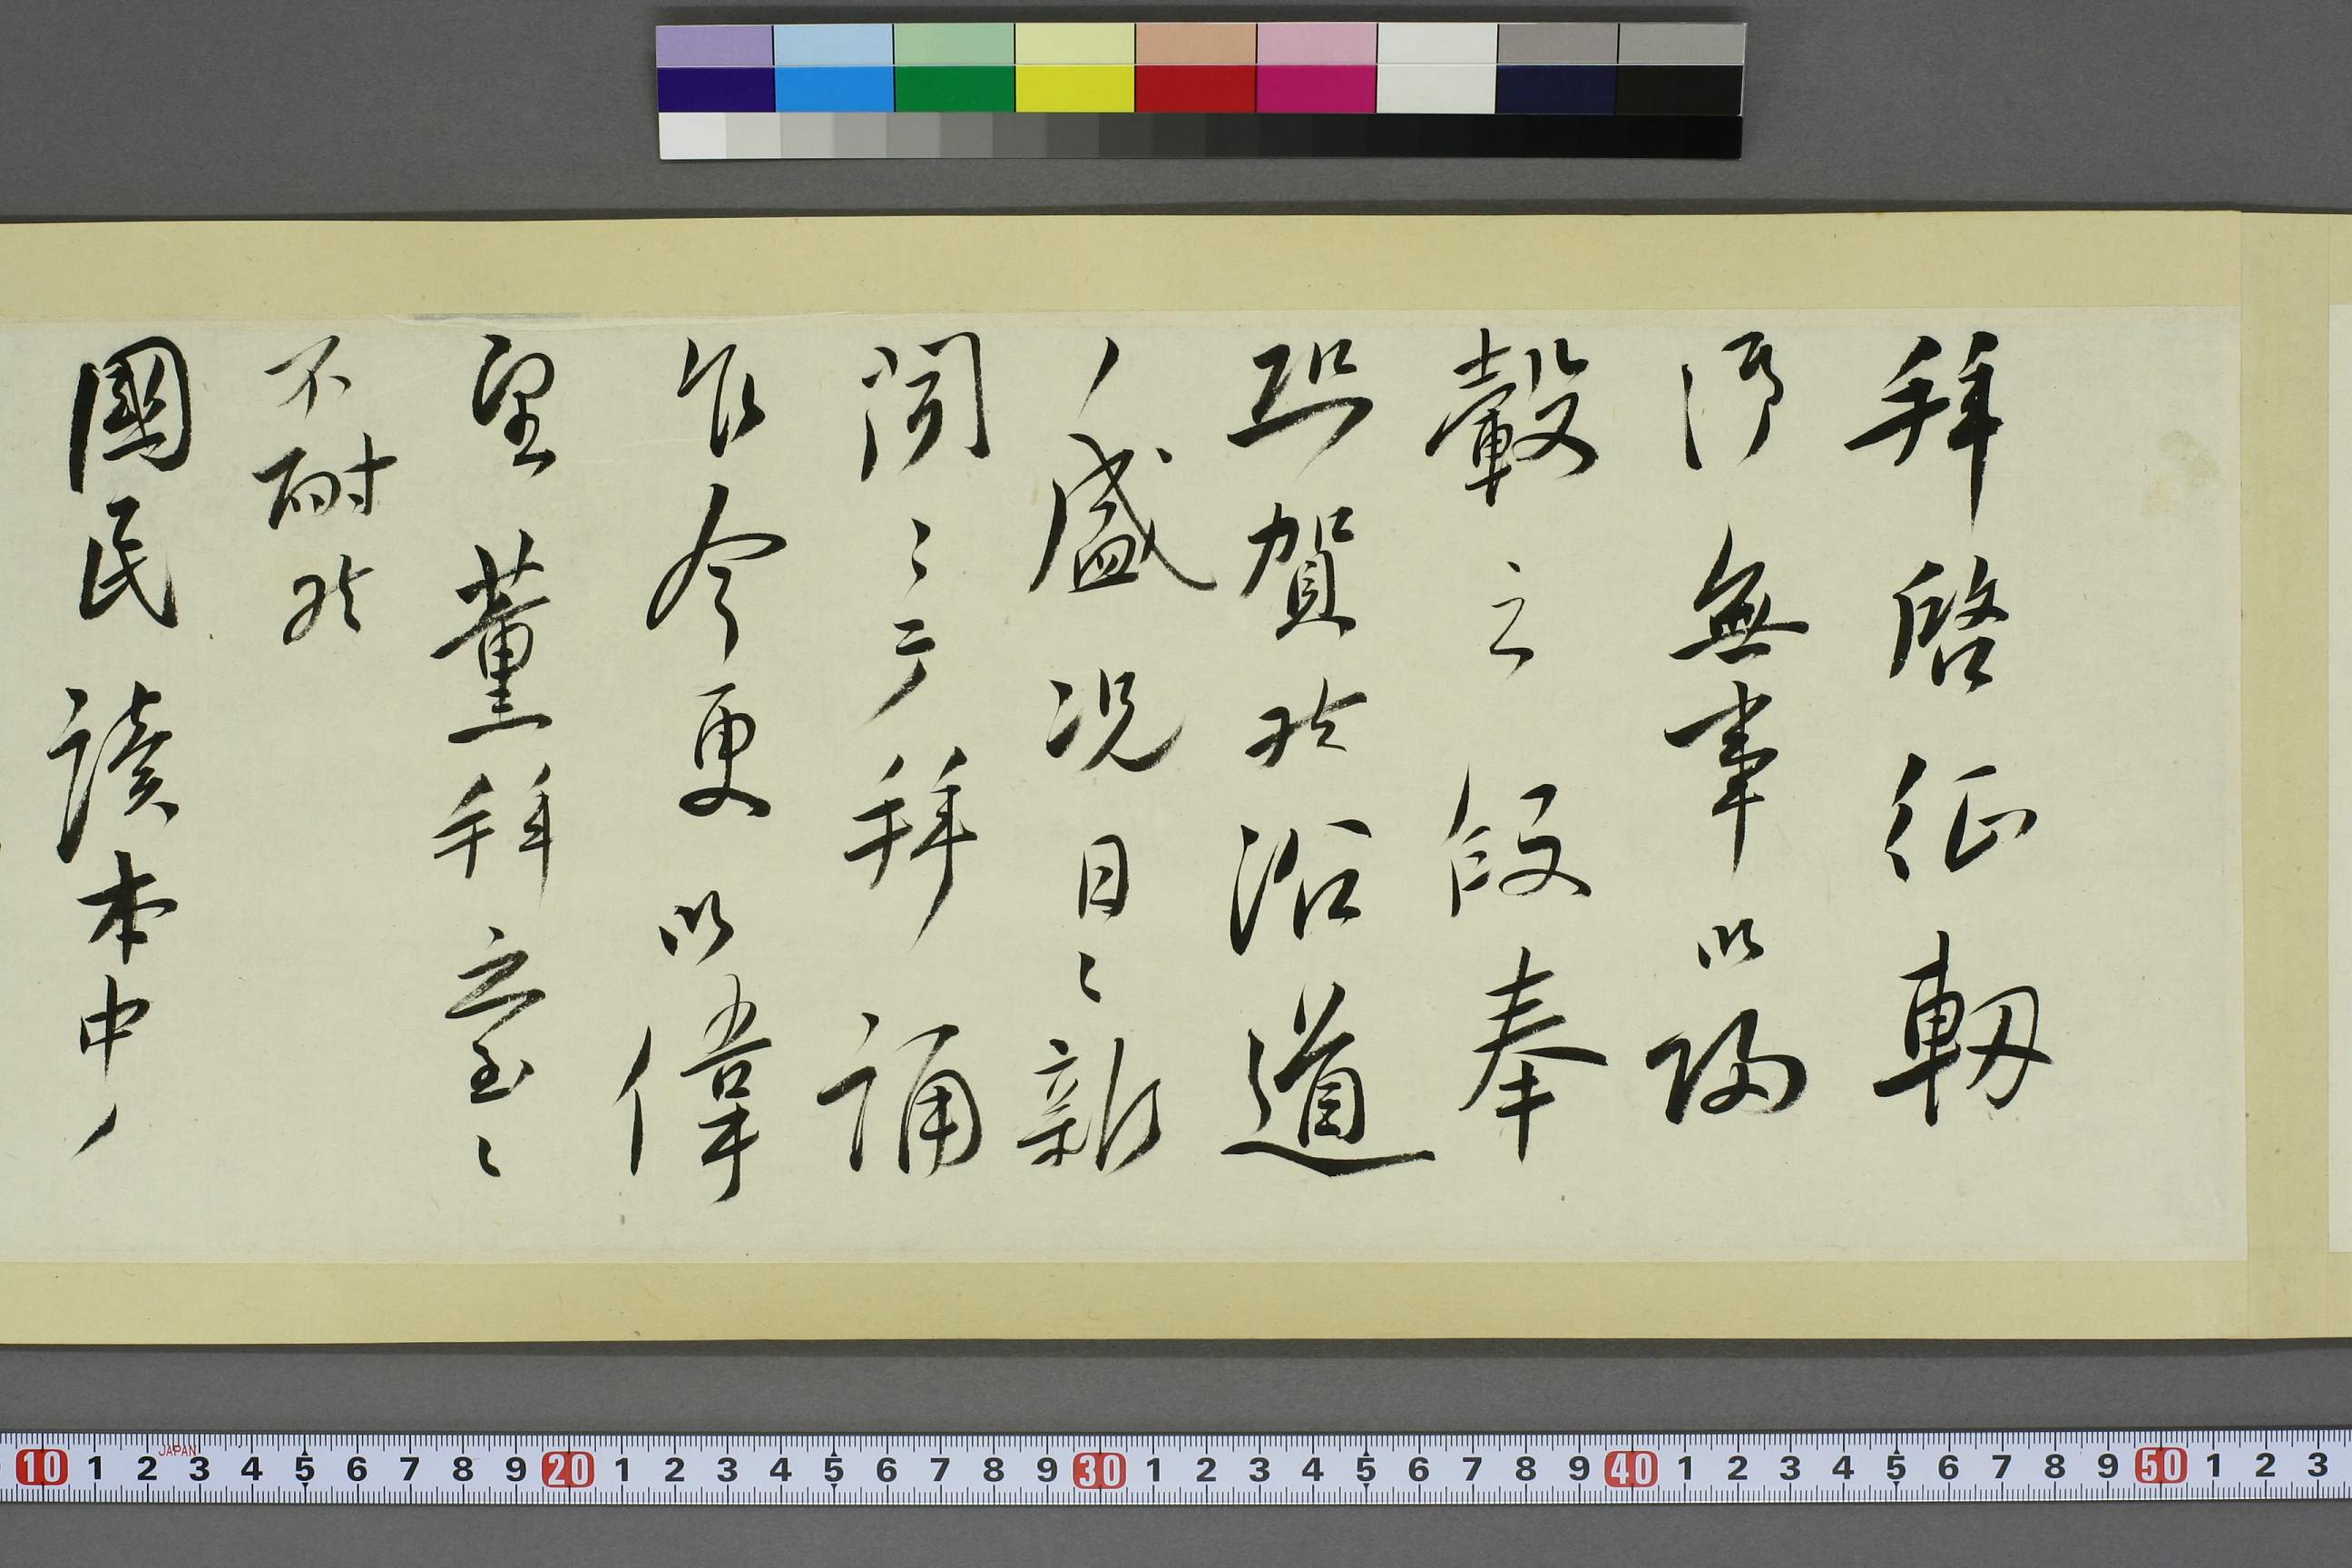 拜啓征軔
御無事御歸
轂之段奉
恐賀於沿道
ノ盛況日々新
聞ニテ拜誦
乍今更御偉
望薫拜之至ニ
不耐於
國民讀本中ノ
10 1 2 3 4 5 6 7 8 9 20 1 2 3 4 5 6 7 8 9 30 1 2 3 4 5 6 7 8 9 40 1 2 3 4 5 6 7 8 9 50 1 2 3
JAPAN